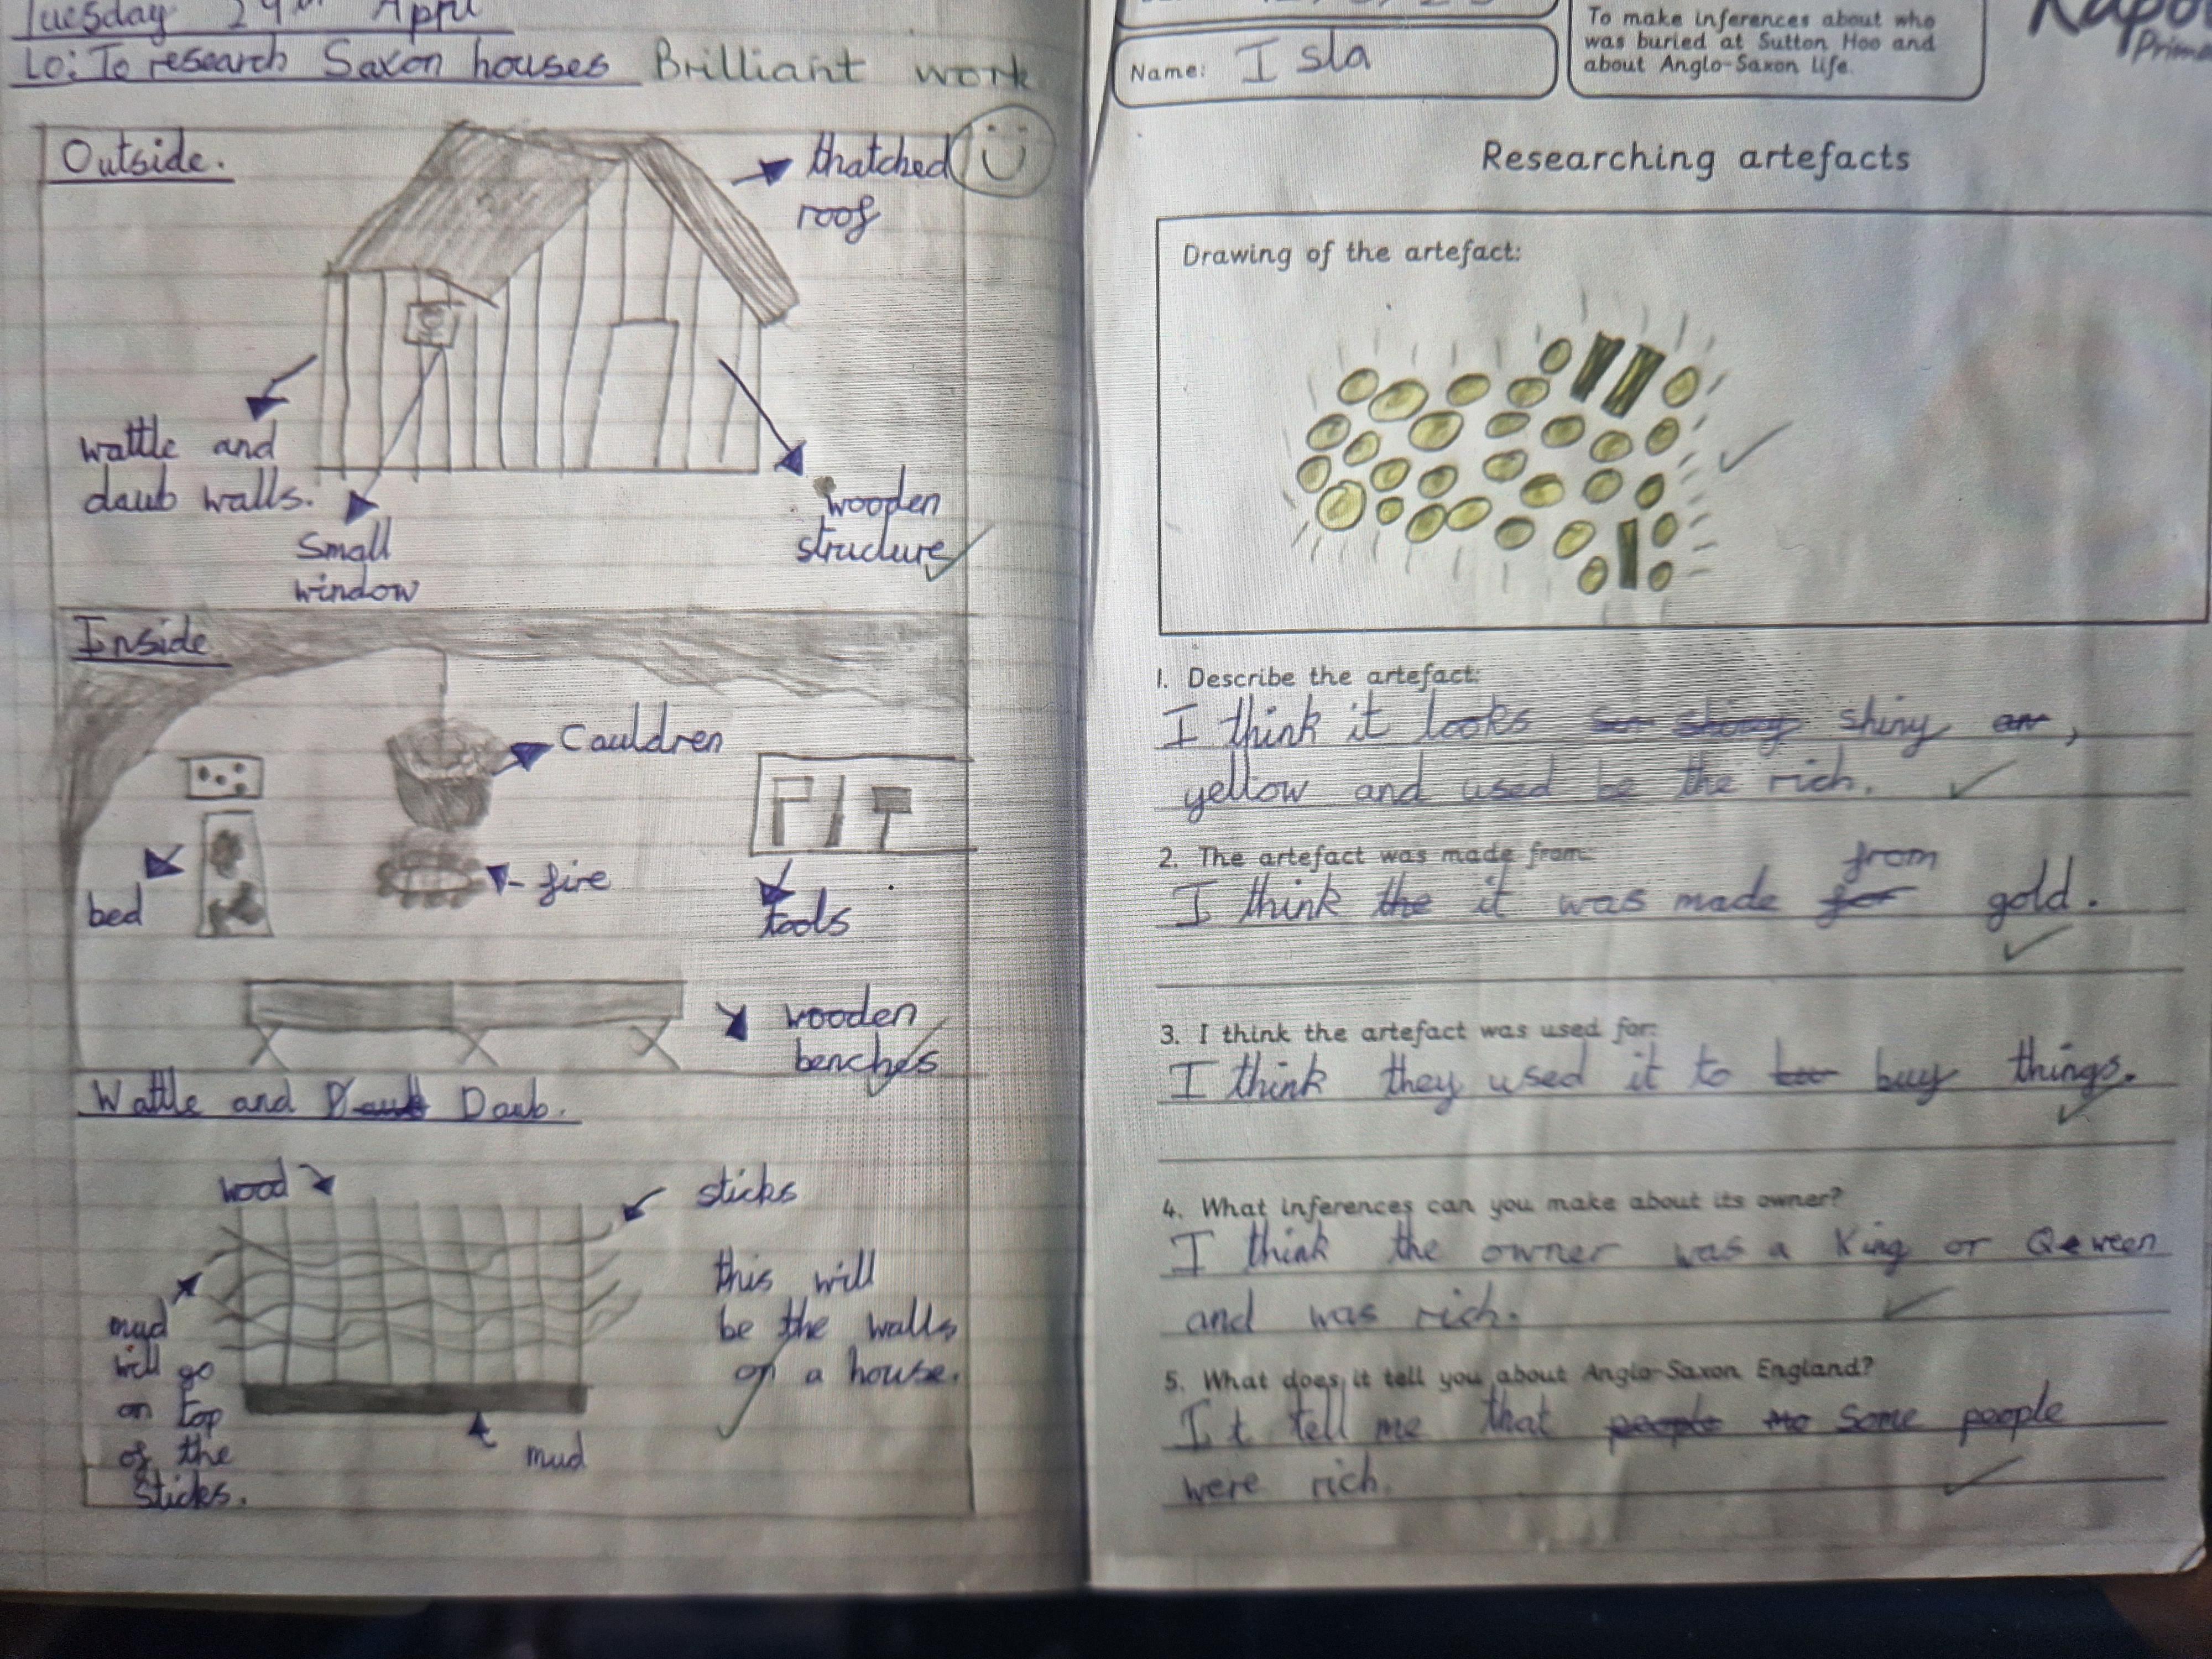 Tuesday 29th April
LO: To research Saxon houses Brilliant work
Outside.
thatched
roof
wattle and
daub walls.
Small
window
wooden
structure
Inside
Cauldren
bed
fire
tools
wooden
benches
Wattle and Daub.
wood
sticks
mud
will go
on top
of the
sticks.
this will
be the walls
on a house.
mud
Name: Isla
To make inferences about who
was buried at Sutton Hoo and
about Anglo-Saxon life.
Researching artefacts
Drawing of the artefact:
1. Describe the artefact:
I think it looks shiny,
yellow and used be the rich.
2. The artefact was made from:
from
I think the it was made for gold.
3. I think the artefact was used for:
I think they used it to buy things.
4. What inferences can you make about its owner?
I think the owner was a King or Qeween
and was rich.
5. What does it tell you about Anglo-Saxon England?
It tell me that people some people
were rich.